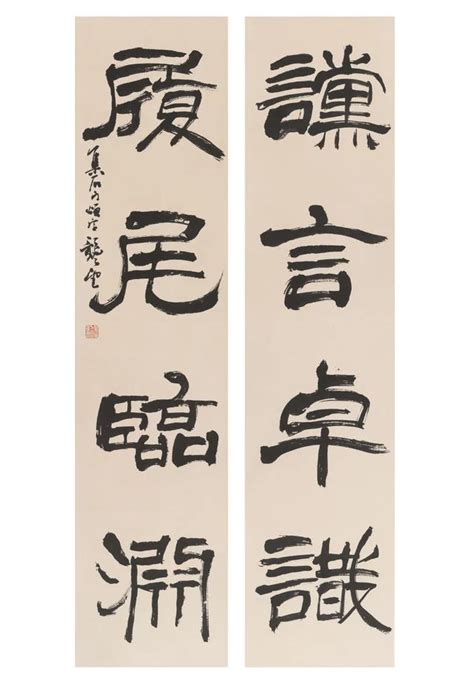 讜言卓識
履尾臨淵
集石門頌字龔望